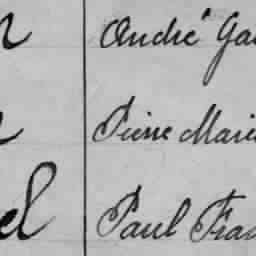 André Ga
Pierre Marie
Paul Fra